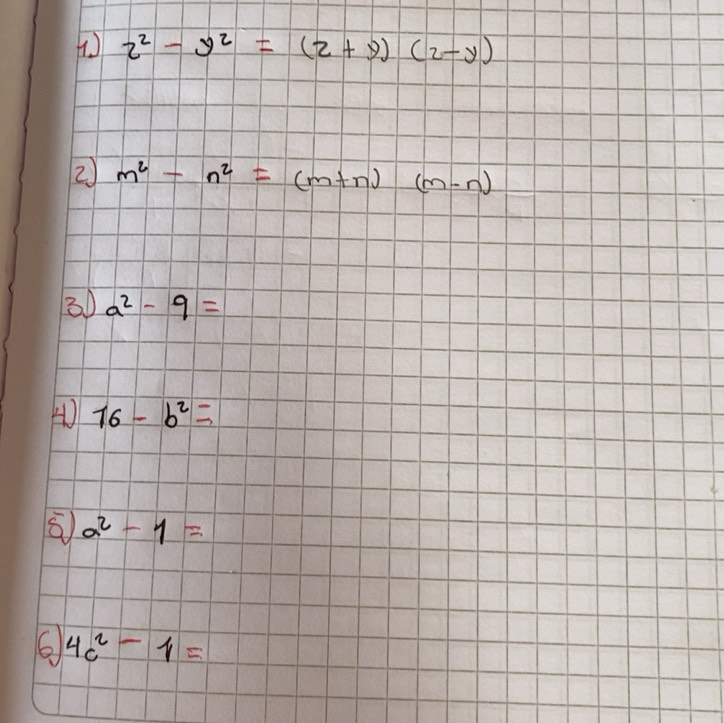 1) z² - y² = (z + y) (z-y)
2) m² - n² = (m+n) (m-n)
3) a² - 9 =
4) 16 - b² =
5) a² - 1 =
6) 4c² - 1 =